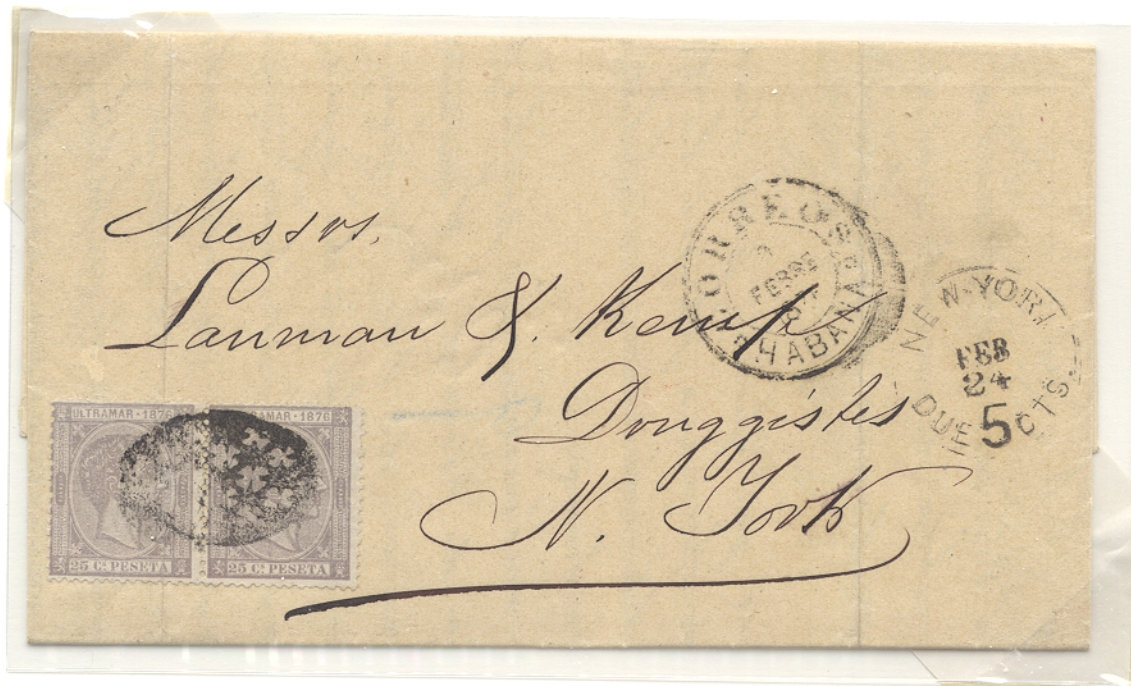 Messrs.
Lanman & Kemp
Druggists
N. York
CORREOS
FEBRE
HABANA
NEW-YORK
FEB
24
DUE 5 CTS
ULTRAMAR · 1876
25 Cs PESETA
RAMAR · 1876
25 Cs PESETA